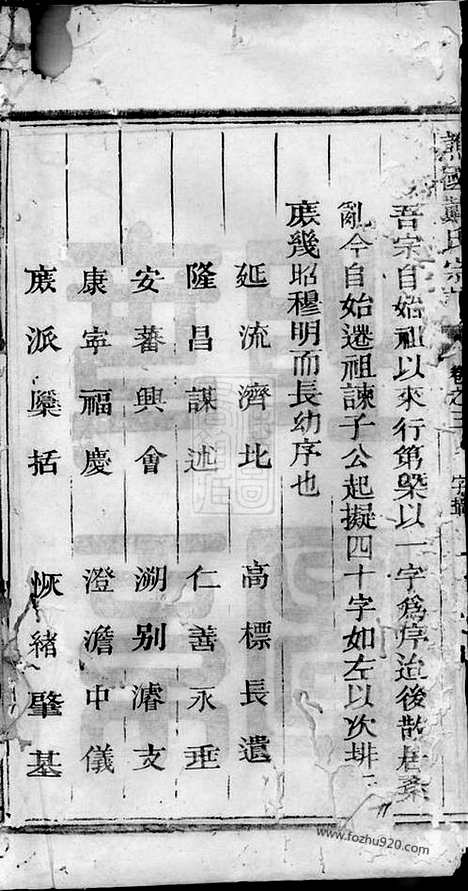 譙國戴氏宗 卷之三 字
吾宗自始祖以來行第槩以一字爲序迨後散
亂今自始遷祖諫子公起擬四十字如左以次排
庶幾昭穆明而長幼序也
延流濟北 高標長遺
隆昌謀述 仁善永垂
安蕃興會 溯別濬支
康寕福慶 澄澹中儀
庶派檃括 恢緒肇基
www.fozhu920.com